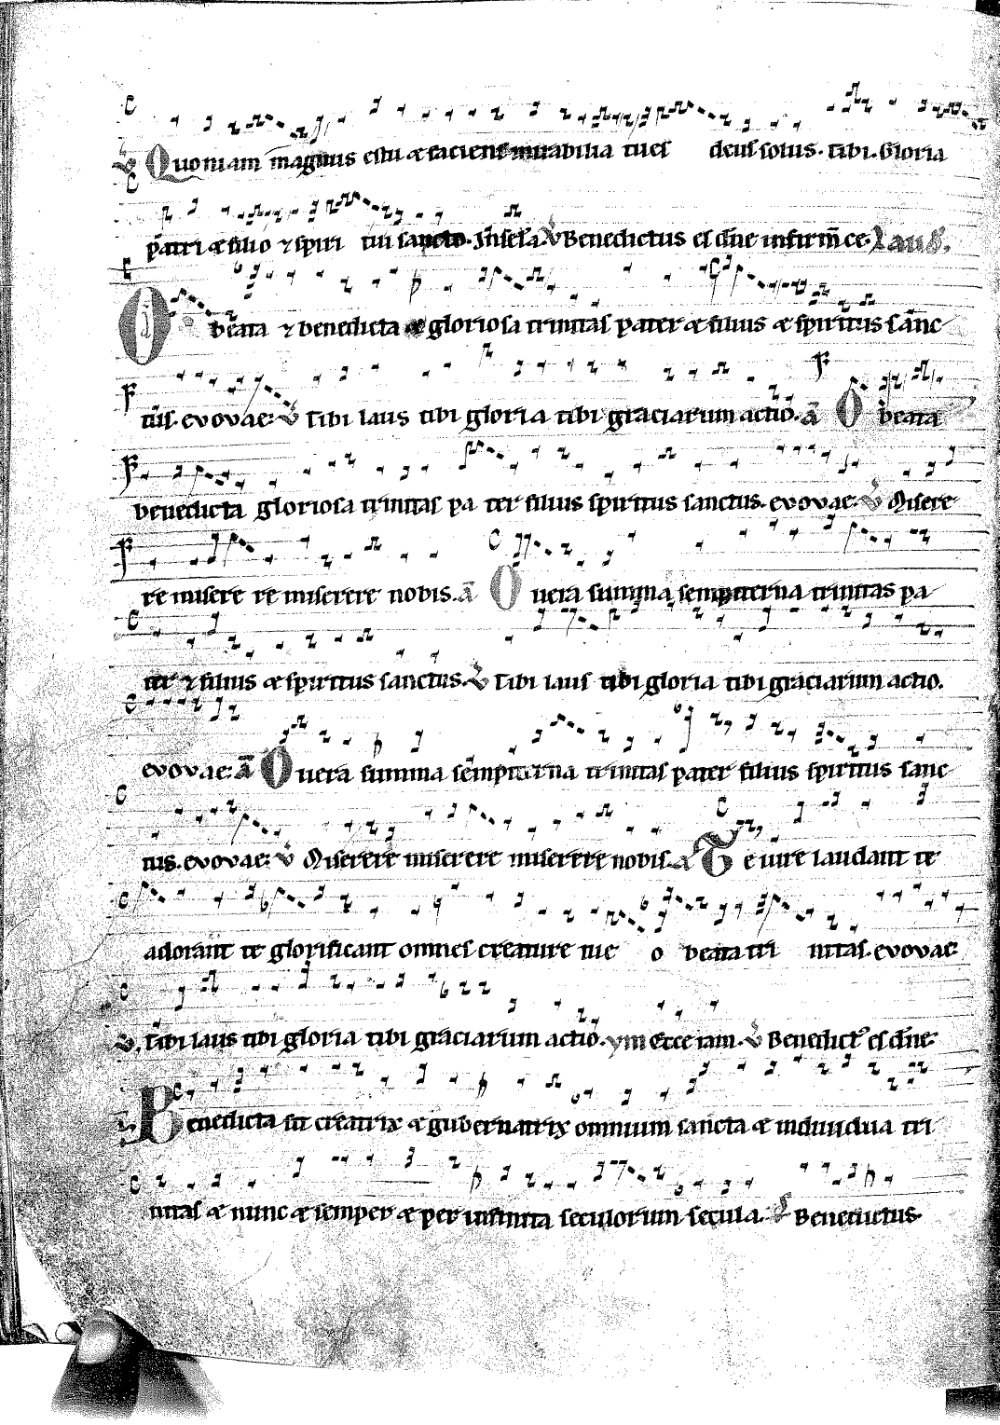 ℣ Quoniam magnus es tu & faciens mirabilia tu es deus solus. tibi. Gloria
patri & filio ⁊ spiri tui sancto. ℣ Benedictus es dñe in firm̄ ce. Laud.
O beata ⁊ benedicta & gloriosa trinitas pater & filius & spiritus sanc
tus. evovae. ℣ Tibi laus tibi gloria tibi graciarum actio. a᷉ O beata
benedicta gloriosa trinitas pa ter filius spiritus sanctus. evovae. ℣ Misere
re misere re miserere nobis. a᷉ O uera summa sempiterna trinitas pa
ter ⁊ filius & spiritus sanctus. ℣ Tibi laus tibi gloria tibi graciarum actio.
evovae. a᷉ O uera summa sempiterna trinitas pater filius spiritus sanc
tus. evovae. ℣ Miserere miserere miserere nobis. a᷉ Te iure laudant te
adorant te glorificant omnes creature tue o beata tri nitas. evovae
℣. Tibi laus tibi gloria tibi graciarum actio. ym Ecce iam. ℣ Benedict᷒ es dñe.
Benedicta sit creatrix & gubernatrix omnium sancta & indiuidua tri
nitas & nunc & semper & per infinita seculorum secula. Benedictus.